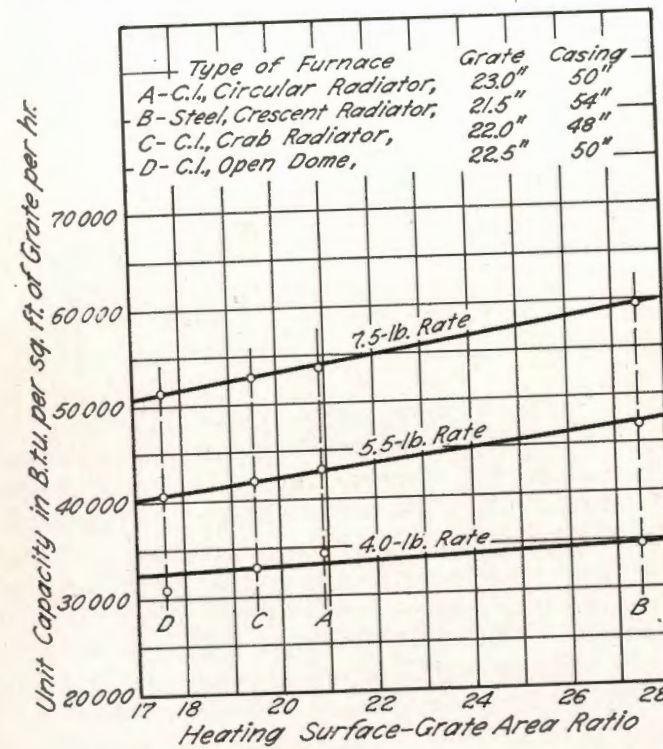 Type of Furnace Grate Casing
A-C.I., Circular Radiator, 23.0" 50"
B-Steel, Crescent Radiator, 21.5" 54"
C- C.I., Crab Radiator, 22.0" 48"
D- C.I., Open Dome, 22.5" 50"
Unit Capacity in B.t.u. per sq. ft. of Grate per hr.
70000
60000
50000
40000
30000
20000
7.5-lb. Rate
5.5-lb. Rate
4.0-lb. Rate
D C A B
17 18 20 22 24 26 28
Heating Surface-Grate Area Ratio